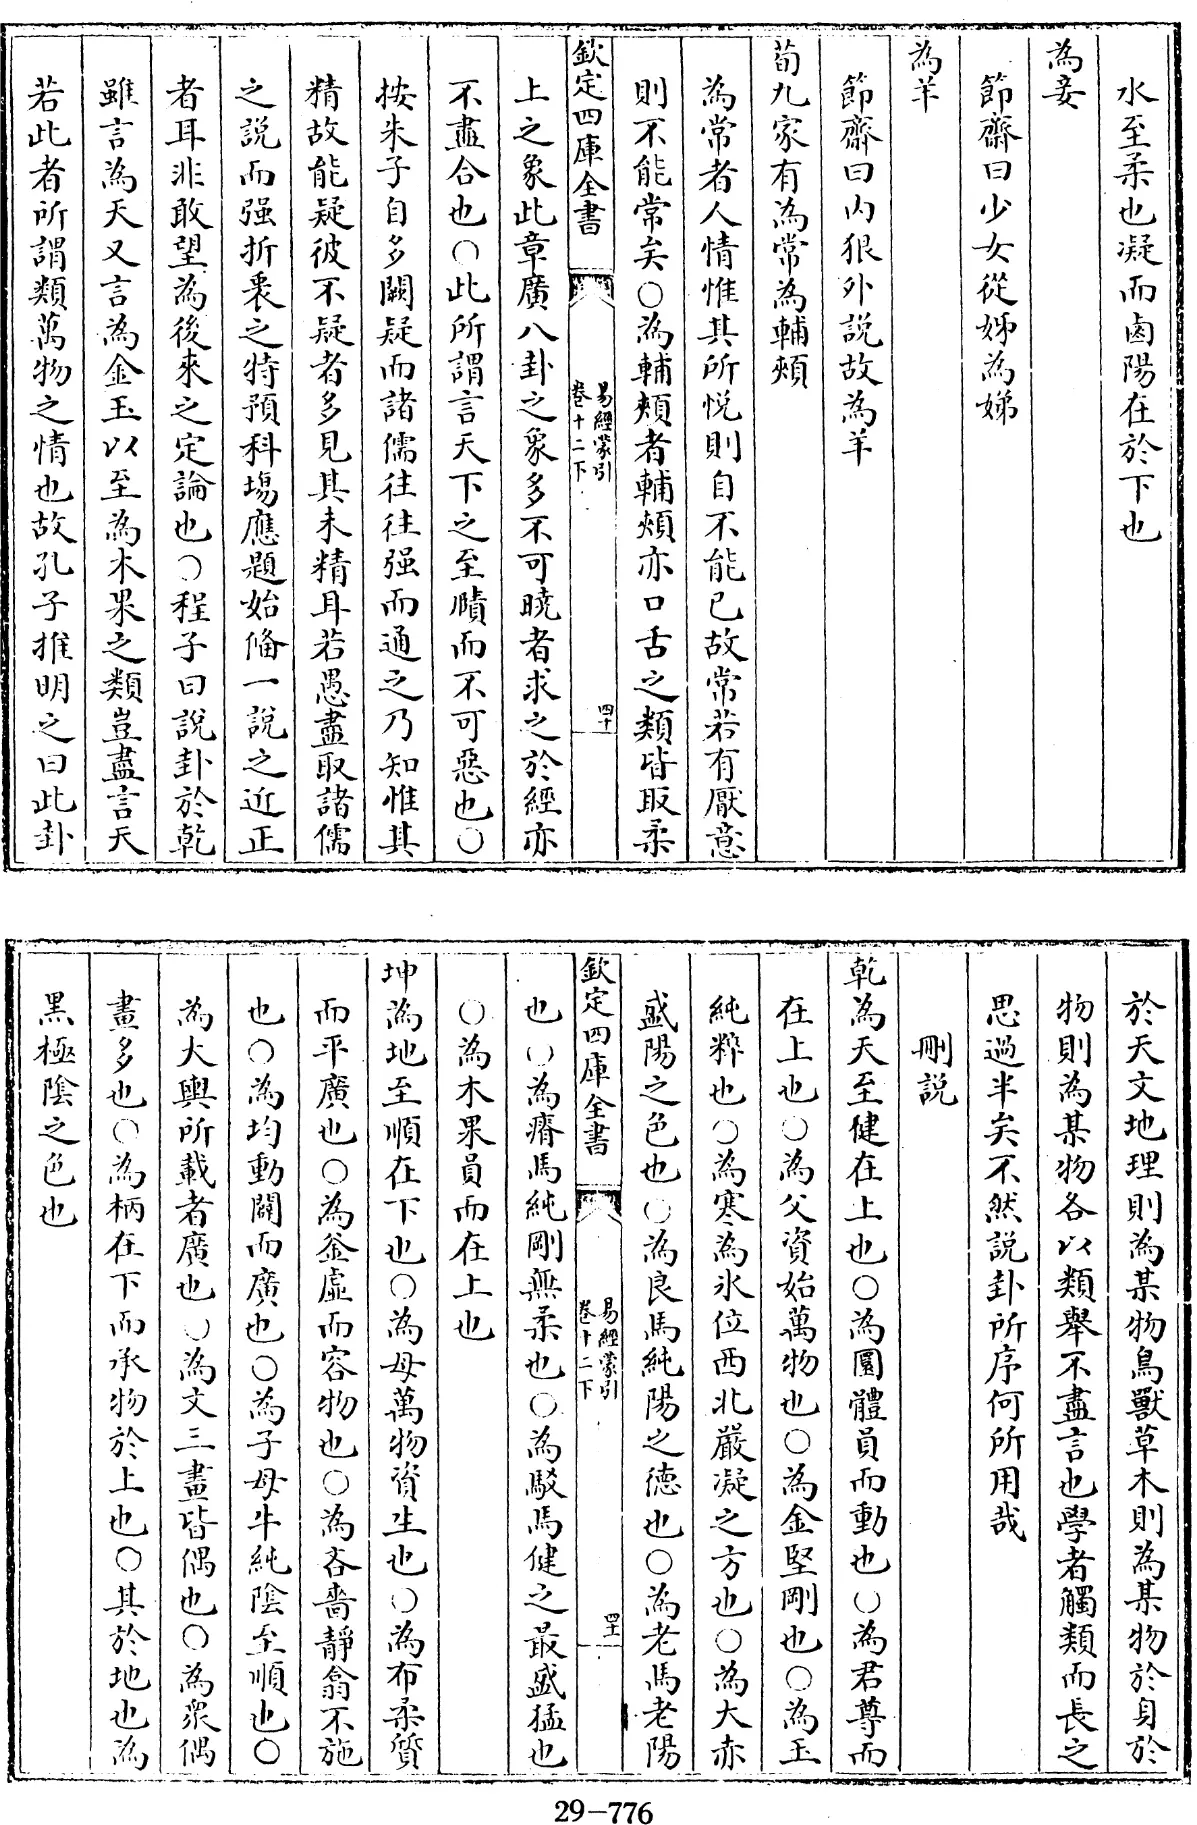 水至柔也凝而鹵陽在於下也
為妾
節齋曰少女從姊為娣
為羊
節齋曰内狠外説故為羊
荀九家有為常為輔頰
為常者人情惟其所悦則自不能已故常若有厭意
則不能常矣○為輔頰者輔頰亦口舌之類皆取柔
欽定四庫全書
易經蒙引
卷十二下
四十
上之象此章廣八卦之象多不可曉者求之於經亦
不盡合也○此所謂言天下之至賾而不可惡也○
按朱子自多闕疑而諸儒往往强而通之乃知惟其
精故能疑彼不疑者多見其未精耳若愚盡取諸儒
之説而强折衷之特預科塲應題始偹一説之近正
者耳非敢望為後來之定論也○程子曰說卦於乾
雖言為天又言為金玉以至為木果之類豈盡言天
若此者所謂類萬物之情也故孔子推明之曰此卦
於天文地理則為某物鳥獸草木則為某物於身於
物則為某物各以類舉不盡言也學者觸類而長之
思過半矣不然說卦所序何所用哉
刪説
乾為天至健在上也○為圜體員而動也○為君尊而
在上也○為父資始萬物也○為金堅剛也○為玉
純粹也○為寒為氷位西北嚴凝之方也○為大赤
盛陽之色也○為良馬純陽之德也○為老馬老陽
欽定四庫全書
易經蒙引
卷十二下
四十一
也○為瘠馬純剛無柔也○為駁馬健之最盛猛也
○為木果員而在上也
坤為地至順在下也○為母萬物資生也○為布柔質
而平廣也○為釡虛而容物也○為吝嗇靜翕不施
也○為均動闢而廣也○為子母牛純陰至順也○
為大輿所載者廣也○為文三畫皆偶也○為衆偶
畫多也○為柄在下而承物於上也○其於地也為
黑極陰之色也
29-776